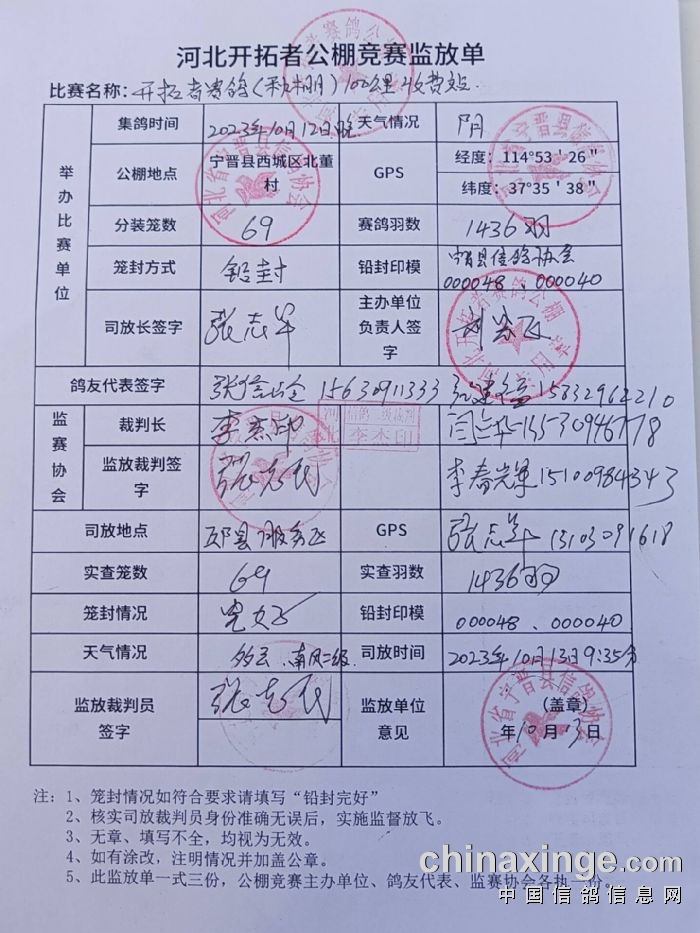 河北开拓者公棚竞赛监放单
比赛名称：开拓者赛鸽(秋棚)100公里收费站
集鸽时间 2023年10月12日晚 天气情况 阴
举办比赛单位
公棚地点 宁晋县西城区北董村 GPS 经度：114°53′26″
纬度：37°35′38″
分装笼数 69 赛鸽羽数 1436羽
笼封方式 铅封 铅封印模 宁晋县信鸽协会
000048、000040
司放长签字 张志军 主办单位负责人签字
鸽友代表签字 15630911333 15832962210
监赛协会
裁判长 李杰印 15530946778
信鸽二级裁判
李杰印
监放裁判签字 张志民 李春光 15100984343
司放地点 邱县服务区 GPS 张志军 13103091618
实查笼数 69 实查羽数 1436羽
笼封情况 完好 铅封印模 000048、000040
天气情况 多云 南风二级 司放时间 2023年10月13日9:35分
监放裁判员签字 张志民 监放单位意见 (盖章)
年10月13日
注：1、笼封情况如符合要求请填写“铅封完好”
2、核实司放裁判员身份准确无误后，实施监督放飞。
3、无章、填写不全，均视为无效。
4、如有涂改，注明情况并加盖公章。
5、此监放单一式三份，公棚竞赛主办单位、鸽友代表、监赛协会各执一份。
chinaxinge.com
中国信鸽信息网